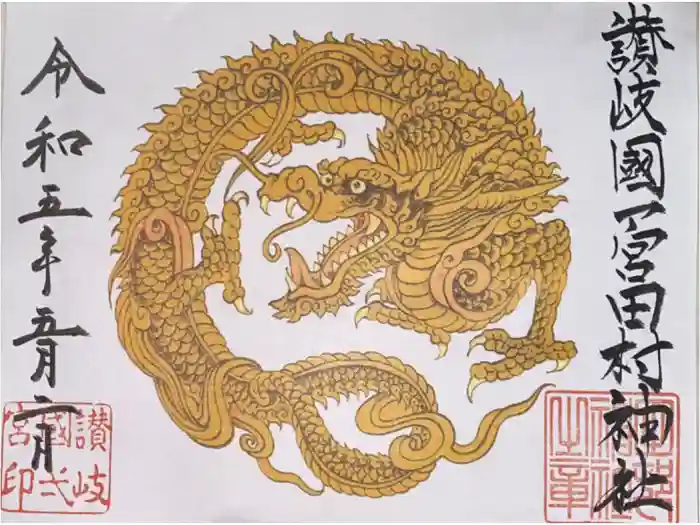 讃岐國一宮田村神社
令和五年五月二日
讃岐
國弌
宮印
神社
之章